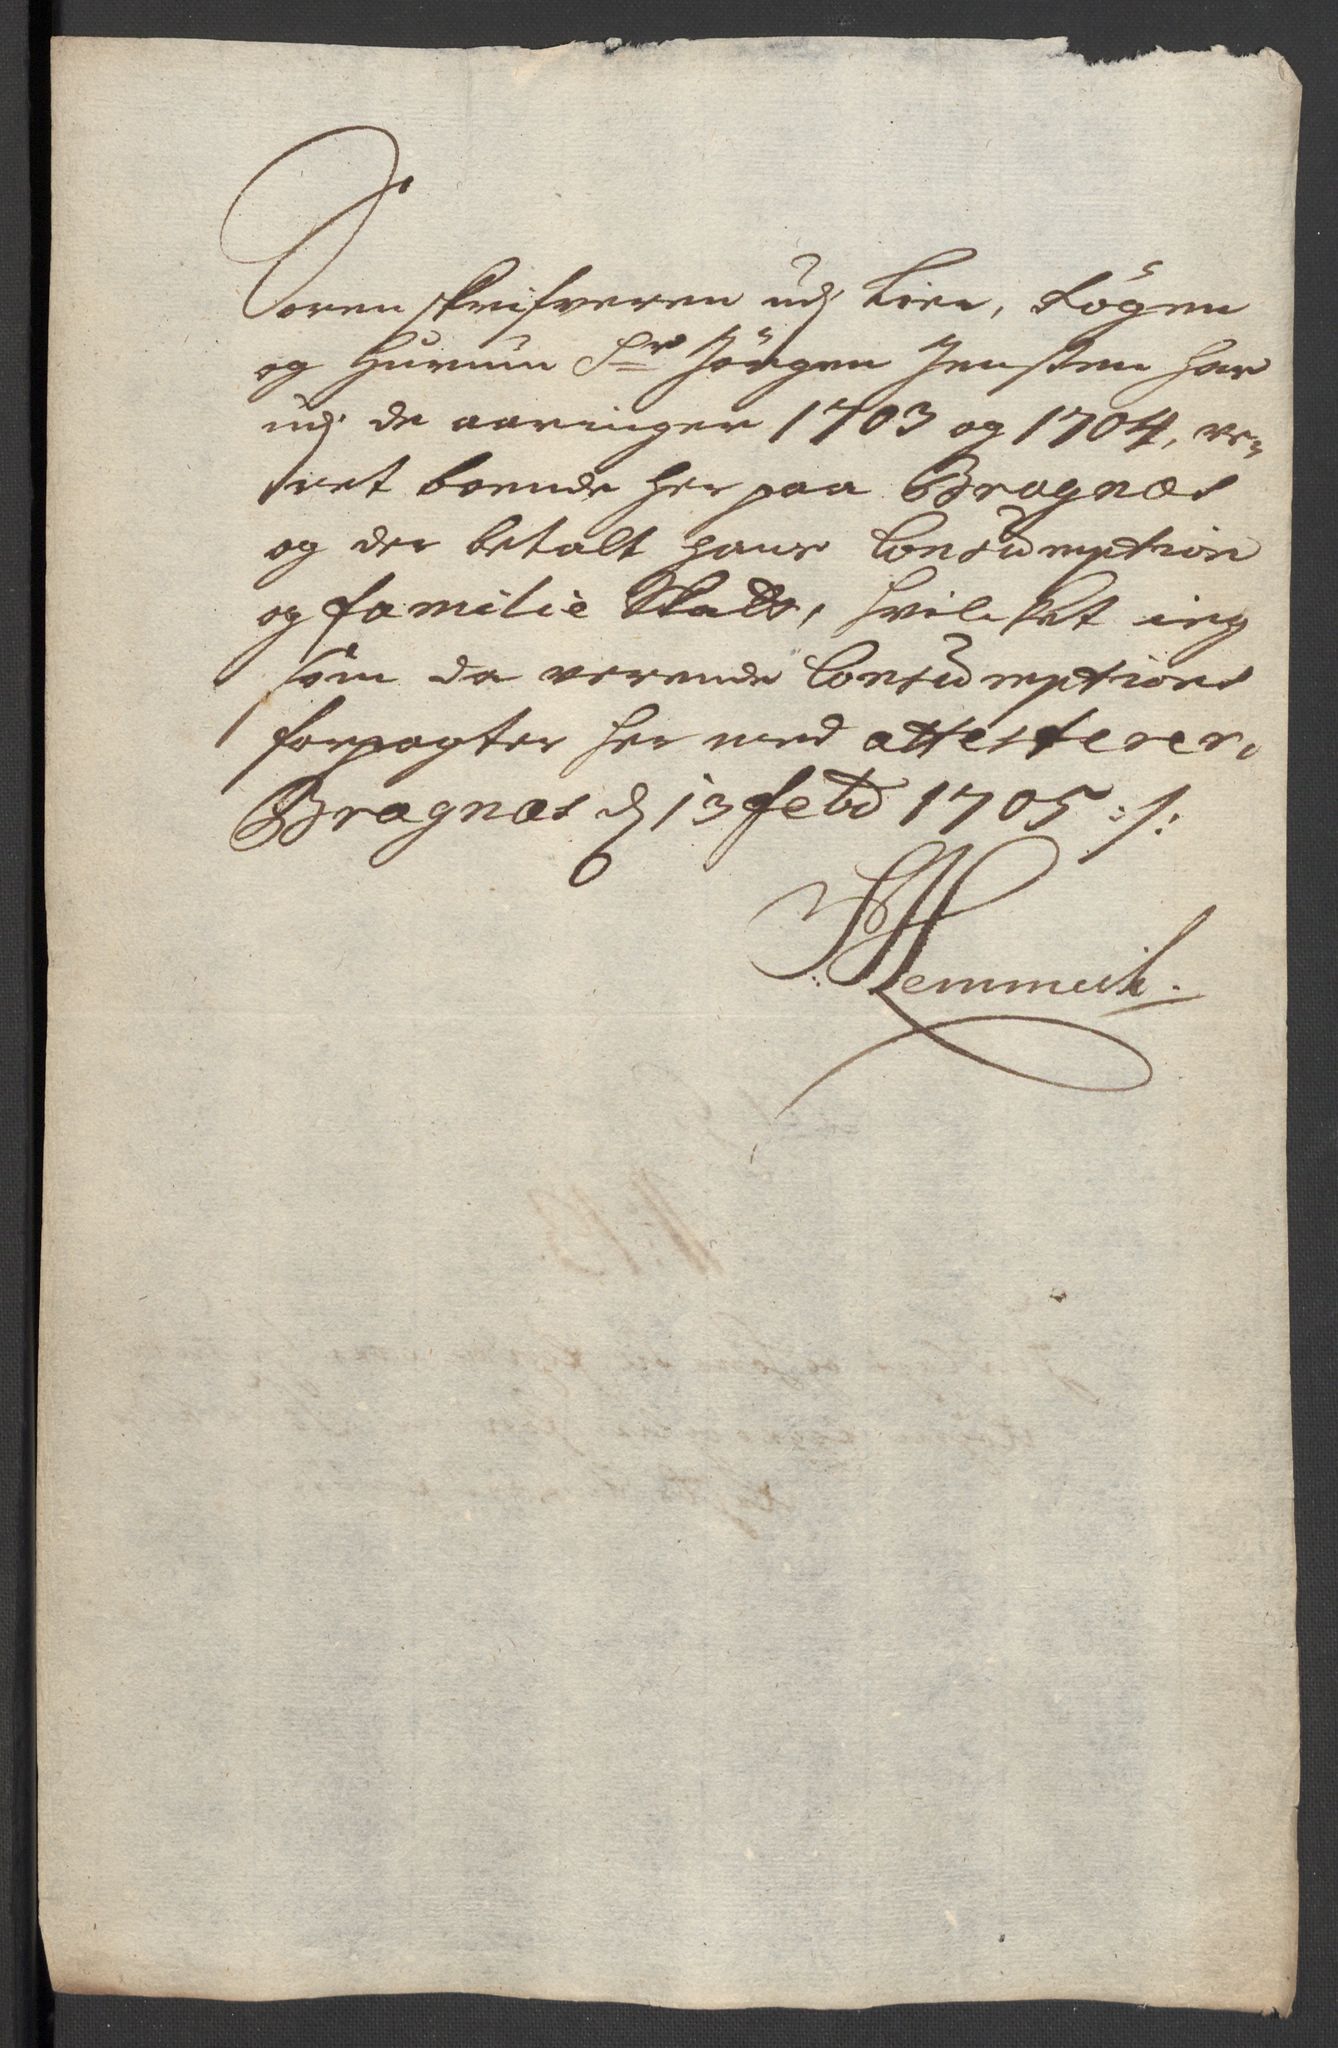 Sorenskrifveren udj Lier, Røgen
og Hurum Sr Jörgen Jensßen har
udj de aaringer 1703 og 1704, ve-
ret boende her paa Bragnæs
og der betalt hans Consumption
og familie Skatt, hvilcket ieg
som da verende Consumptions
forpagter her med attesterer,
Bragnæs d 13 febr 1705 ./:
Hemmeik.
No 13